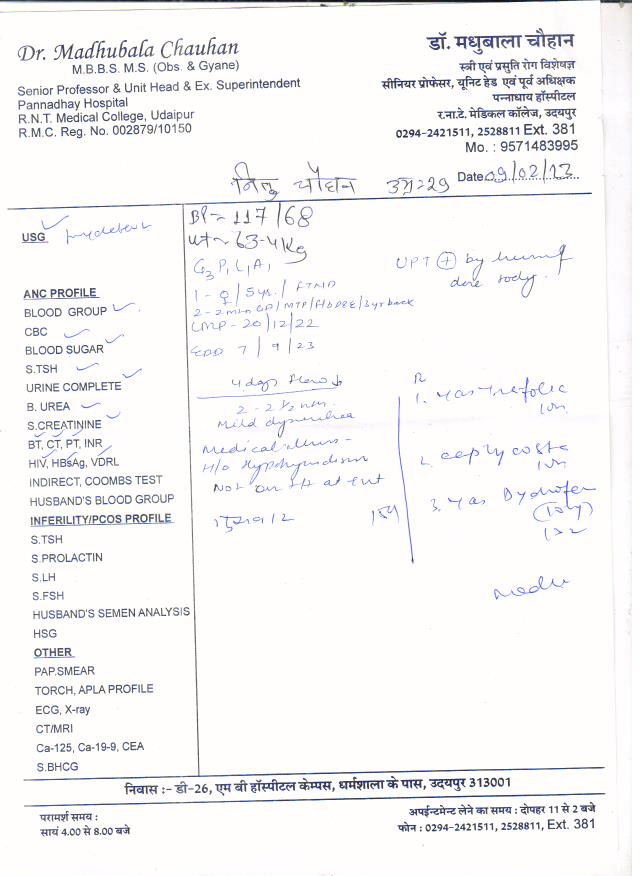 Dr. Madhubala Chauhan
M.B.B.S. M.S. (Obs. & Gyane)
Senior Professor & Unit Head & Ex. Superintendent
Pannadhay Hospital
R.N.T. Medical College, Udaipur
R.M.C. Reg. No. 002879/10150
डॉ. मधुबाला चौहान
स्त्री एवं प्रसुति रोग विशेषज्ञ
सीनियर प्रोफेसर, यूनिट हेड एवं पूर्व अधिक्षक
पन्नाधाय हॉस्पीटल
र.ना.टे. मेडिकल कॉलेज, उदयपुर
0294-2421511, 2528811 Ext. 381
Mo. : 9571483995
Date 09/02/23
चौहान उम्र=29
USG
ANC PROFILE
BLOOD GROUP
CBC
BLOOD SUGAR
S.TSH
URINE COMPLETE
B. UREA
S.CREATININE
BT, CT, PT, INR
HIV, HBsAg, VDRL
INDIRECT, COOMBS TEST
HUSBAND'S BLOOD GROUP
INFERILITY/PCOS PROFILE
S.TSH
S.PROLACTIN
S.LH
S.FSH
HUSBAND'S SEMEN ANALYSIS
HSG
OTHER
PAP.SMEAR
TORCH, APLA PROFILE
ECG, X-ray
CT/MRI
Ca-125, Ca-19-9, CEA
S.BHCG
BP - 117/68
wt ~ 63.4 kg
G3 P1 L1 A1
1 - ♀ / 5 yrs. / FTND
LMP - 20/12/22
EDD 7/9/23
4 days flow
Mild dysmenorrhea
Medical illness -
H/o Hypothyroidism
UPT ⊕ by
done today.
1.
2.
3.
निवास :- डी-26, एम बी हॉस्पीटल केम्पस, धर्मशाला के पास, उदयपुर 313001
परामर्श समय :
सायं 4.00 से 8.00 बजे
अपॉइन्टमेन्ट लेने का समय : दोपहर 11 से 2 बजे
फोन : 0294-2421511, 2528811, Ext. 381